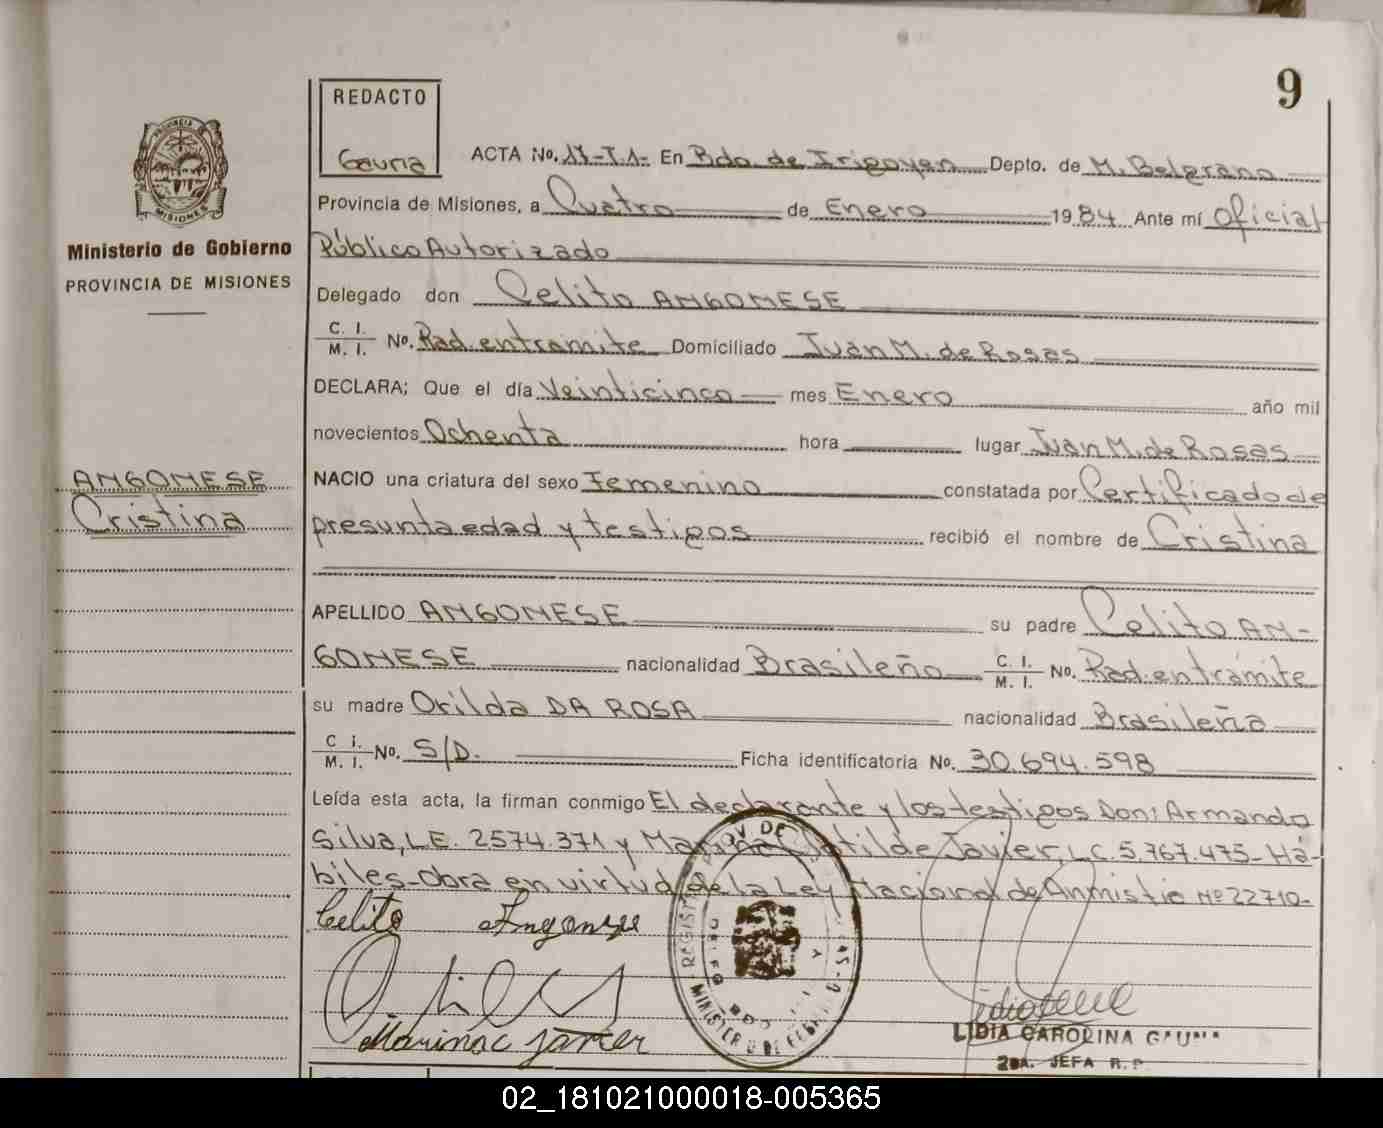 9
REDACTO
Gauna
ACTA No. 17-T.1- En Bdo de Irigoyen Depto. de M. Belgrano
Provincia de Misiones, a Cuatro de Enero 1984 Ante mí Oficial
Público Autorizado
Delegado don Celito ANGONESE
C. I. / M. I. No. Rad. entramite Domiciliado Juan M. de Rosas
DECLARA; Que el día Veinticinco mes Enero año mil
novecientos Ochenta hora lugar Juan M. de Rosas
NACIO una criatura del sexo Femenino constatada por Certificado de
presunta edad y testigos recibió el nombre de Cristina
APELLIDO ANGONESE su padre Celito AN-
GONESE nacionalidad Brasileño C. I. / M. I. No. Rad. entrámite
su madre Orilda DA ROSA nacionalidad Brasileña
C. I. / M. I. No. S/D. Ficha identificatoria No. 30.694.598
Leída esta acta, la firman conmigo El declarante y los testigos Don: Armando
Silva, L.E. 2574.371 y Clotilde Javier, L.C. 5.767.475- Há-
biles-Obra en virtud de la Ley Nacional de Anmistia Nº 22710-
Celito Angonese
Javier
LIDIA CAROLINA GAUNA
2da. JEFA R.P.
PROVINCIA DE
MISIONES
Ministerio de Gobierno
PROVINCIA DE MISIONES
ANGONESE
Cristina
02_181021000018-005365